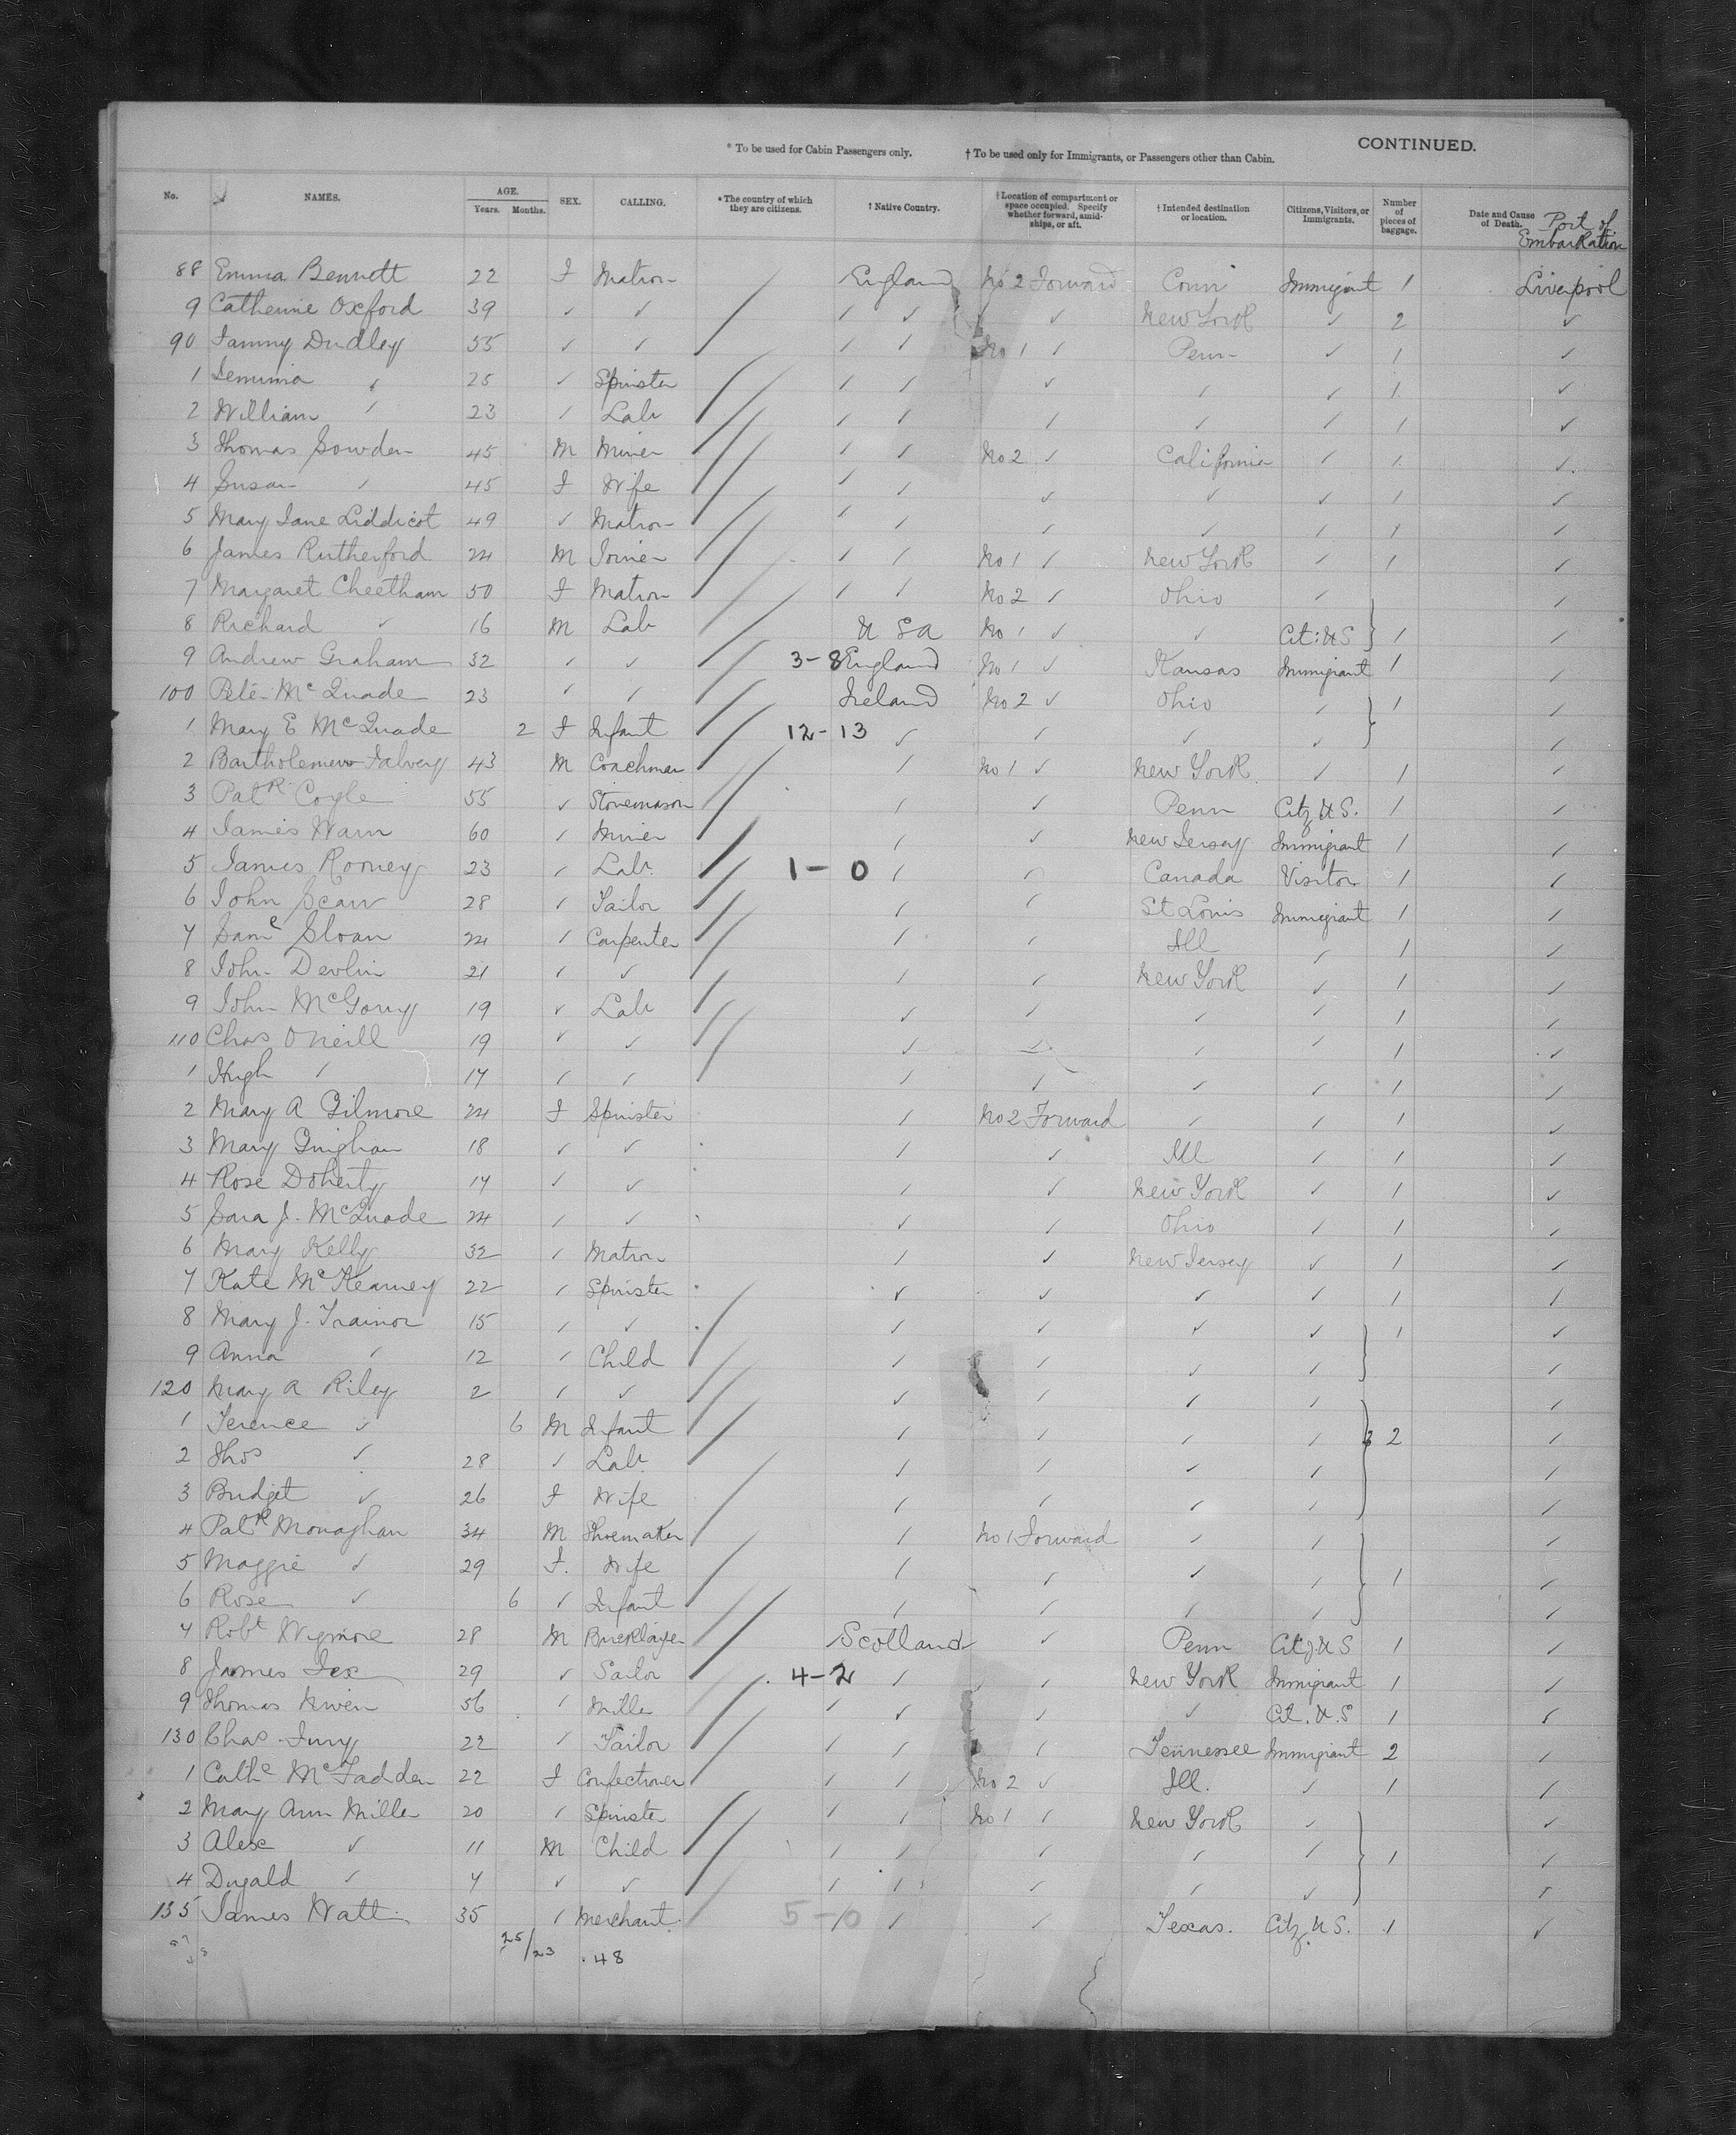 CONTINUED.
* To be used for Cabin Passengers only. † To be used only for Immigrants, or Passengers other than Cabin.
No. NAMES. AGE. Years. Months. SEX. CALLING. * The country of which they are citizens. † Native Country. † Location of compartment or space occupied. Specify whether forward, amidships, or aft. † Intended destination or location. Citizens, Visitors, or Immigrants. Number of pieces of baggage. Date and Cause of Death. Port of Embarkation
88 Emma Bennett 22 F Matron England No 2 Forward Conn Immigrant 1 Liverpool
9 Catherine Oxford 39 ✓ ✓ ✓ ✓ ✓ ✓ New York ✓ 2 ✓
90 Fanny Dudley 55 ✓ ✓ ✓ ✓ No 1 ✓ Penn ✓ 1 ✓
1 Jemima ✓ 25 ✓ Spinster ✓ ✓ ✓ ✓ ✓ 1 ✓
2 William ✓ 23 ✓ Lab ✓ ✓ ✓ ✓ ✓ 1 ✓
3 Thomas Sowden 45 M Miner ✓ ✓ No 2 ✓ California ✓ 1 ✓
4 Susan ✓ 45 F Wife ✓ ✓ ✓ ✓ ✓ 1 ✓
5 Mary Jane Liddicot 49 ✓ Matron ✓ ✓ ✓ ✓ ✓ 1 ✓
6 James Rutherford 24 M Joiner ✓ ✓ No 1 ✓ New York ✓ 1 ✓
7 Margaret Cheetham 50 F Matron ✓ ✓ No 2 ✓ Ohio ✓ ✓
8 Richard ✓ 16 M Lab U S A No 1 ✓ ✓ Cit: U S } 1 ✓
9 Andrew Graham 32 ✓ ✓ 3-8 England No 1 ✓ Kansas Immigrant 1 ✓
100 Peter McQuade 23 ✓ ✓ Ireland No 2 ✓ Ohio ✓ 1 ✓
1 Mary E McQuade 2 F Infant 12-13 ✓ ✓ ✓ ✓ } ✓
2 Bartholemew Falvey 43 M Coachman ✓ No 1 ✓ New York ✓ 1 ✓
3 Patk Coyle 55 ✓ Stonemason ✓ ✓ Penn Citz U S. 1 ✓
4 James Warn 60 ✓ Miner ✓ ✓ New Jersey Immigrant 1 ✓
5 James Rooney 23 ✓ Lab. 1-0 ✓ Canada Visitor 1 ✓
6 John 28 ✓ Tailor ✓ ✓ St Louis Immigrant 1 ✓
7 Saml Sloan 24 ✓ Carpenter ✓ ✓ Ill ✓ 1 ✓
8 John Devlin 21 ✓ ✓ ✓ ✓ New York ✓ 1 ✓
9 John McGorry 19 ✓ Lab ✓ ✓ ✓ ✓ 1 ✓
110 Chas O Neill 19 ✓ ✓ ✓ ✓ ✓ ✓ 1 ✓
1 Hugh ✓ 17 ✓ ✓ ✓ ✓ ✓ ✓ 1 ✓
2 Mary A Gilmore 24 F Spinster ✓ No 2 Forward ✓ ✓ 1 ✓
3 Mary 18 ✓ ✓ ✓ ✓ Ill ✓ 1 ✓
4 Rose Doherty 17 ✓ ✓ ✓ ✓ New York ✓ 1 ✓
5 Sara J. McQuade 24 ✓ ✓ ✓ ✓ Ohio ✓ 1 ✓
6 Mary Kelly 32 ✓ Matron ✓ ✓ New Jersey ✓ 1 ✓
7 Kate McKearney 22 ✓ Spinster ✓ ✓ ✓ ✓ 1 ✓
8 Mary J. Trainor 15 ✓ ✓ ✓ ✓ ✓ ✓ 1 ✓
9 Anna ✓ 12 ✓ Child ✓ ✓ ✓ ✓ } ✓
120 Mary A Riley 2 ✓ ✓ ✓ ✓ ✓ ✓ ✓
1 Terence ✓ 6 M Infant ✓ ✓ ✓ ✓ } 2 ✓
2 Thos ✓ 28 ✓ Lab. ✓ ✓ ✓ ✓ ✓
3 Bridget ✓ 26 F Wife ✓ ✓ ✓ ✓ ✓
4 Patk Monaghan 34 M Shoemaker ✓ No 1 Forward ✓ ✓ ✓
5 Maggie ✓ 29 F. Wife ✓ ✓ ✓ ✓ } 1 ✓
6 Rose ✓ 6 ✓ Infant ✓ ✓ ✓ ✓ ✓
7 Robt Wigmore 28 M Bricklayer Scotland ✓ Penn Citz U S 1 ✓
8 James 29 ✓ Sailor 4-2 ✓ ✓ ✓ New York Immigrant 1 ✓
9 Thomas 56 ✓ Miller ✓ ✓ ✓ ✓ Cit. U.S 1 ✓
130 Chas 22 ✓ Tailor ✓ ✓ ✓ Tennessee Immigrant 2 ✓
1 Cathe McFadden 22 F Confectioner ✓ ✓ No 2 ✓ Ill. ✓ 1 ✓
2 Mary Ann Miller 20 ✓ Spinster ✓ ✓ No 1 ✓ New York ✓ ✓
3 Alex ✓ 11 M Child ✓ ✓ ✓ ✓ ✓ } 1 ✓
4 Dugald ✓ 7 ✓ ✓ ✓ ✓ ✓ ✓ ✓ ✓
135 James Watt 35 ✓ Merchant 5-0 ✓ ✓ ✓ Texas. Citz U S. 1 ✓
25/23 . 48